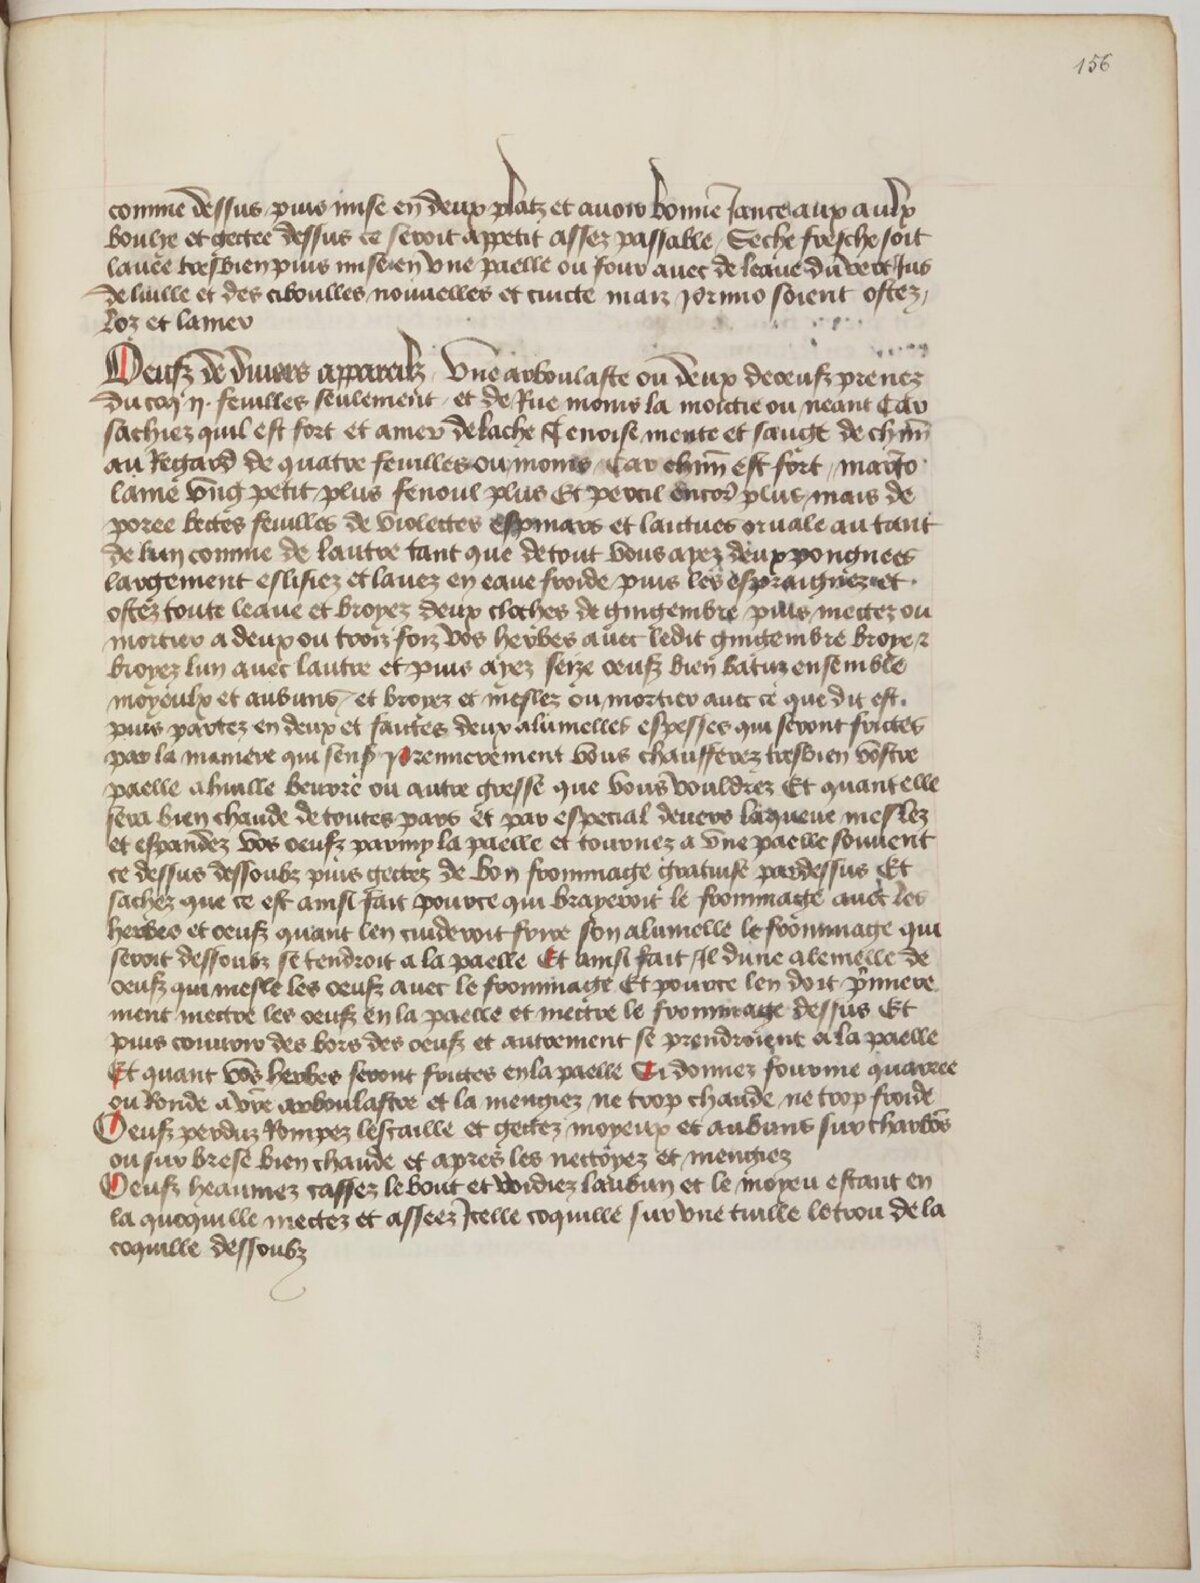 156
comme dessus puis mise en deux platz et avoir bonne Jance aux aulx
boulye et gectee dessus ce seroit appetit assez passable / Seche fresche soit
lavee tresbien puis mise en une paelle ou four avec de leaue du vert Jus
de luille et des ciboulles nouvelles et cuicte maiz primo soient ostez /
loz et lamer
Oeufz de divers appareilz / Une arboulaste ou deux de oeufz prenez
du coq .ij. feuilles seulement et de Rue moins la moictie ou neant Car
sachiez quil est fort et amer de lache tenoise mente et sauge de chūn
au Regard de quatre feuilles ou moins Car chūn est fort / marjo
lame ung petit plus fenoul plus Et percil encor plus mais de
poree bectes feuilles de violectes espinars et laictues orvale autant
de lun comme de lautre tant que de tout vous ayez deux pongnees
largement eslisiez et lavez en eaue froide puis les espraignez et
ostez toute leaue et broyez deux cloches de gingembre / puis mectez ou
mortier a deux ou troiz foiz voz herbes avec ledit gingembre broye z
broyez lun avec lautre et puis ayez seize oeufz bien batuz ensemble
moyeulx et aubuns / et broyez et meslez ou mortier avec ce que dit est.
puis partez en deux et faictes deux alumelles espesses qui seront frictes
par la maniere qui sensᵗ Premierement vous chaufferez tresbien vostre
paelle a huille beurre ou autre gresse que vous vouldrez Et quant elle
sera bien chaude de toutes pars et par especial devers la queue meslez
et espandez voz oeufz parmy la paelle et tournez a une paelle souvent
ce dessus dessoubz puis gectez de bon frommage gratuise pardessus Et
sachez que ce est ainsi fait pource qui brayeroit le frommage avec les
herbes et oeufz quant len cuideroit frire son alumelle le frommage qui
seroit dessoubz se tendroit a la paelle Et ainsi fait Il dune alemelle de
oeufz qui mesle les oeufz avec le frommage Et pource len doit p̄miere
ment mectre les oeufz en la paelle et mectre le frommage dessus Et
puis couvrir des bors des oeufz et autrement se prendroient a la paelle
Et quant voz herbes seront frictes en la paelle Si donnez fourme quarree
ou Ronde a vr̄e arboulastre et la mengiez ne trop chaude ne trop froide
Oeufz perduz Rompez lescaille et gectez moyeux et aubuns sur charbōs
ou sur brese bien chaude et apres les nectoyez et mengiez
Oeufz heaumez cassez le bout et voidiez laubun et le moyeu estant en
la quoquille mectez et asseez Icelle coquille sur une tuille le trou de la
coquille dessoubz